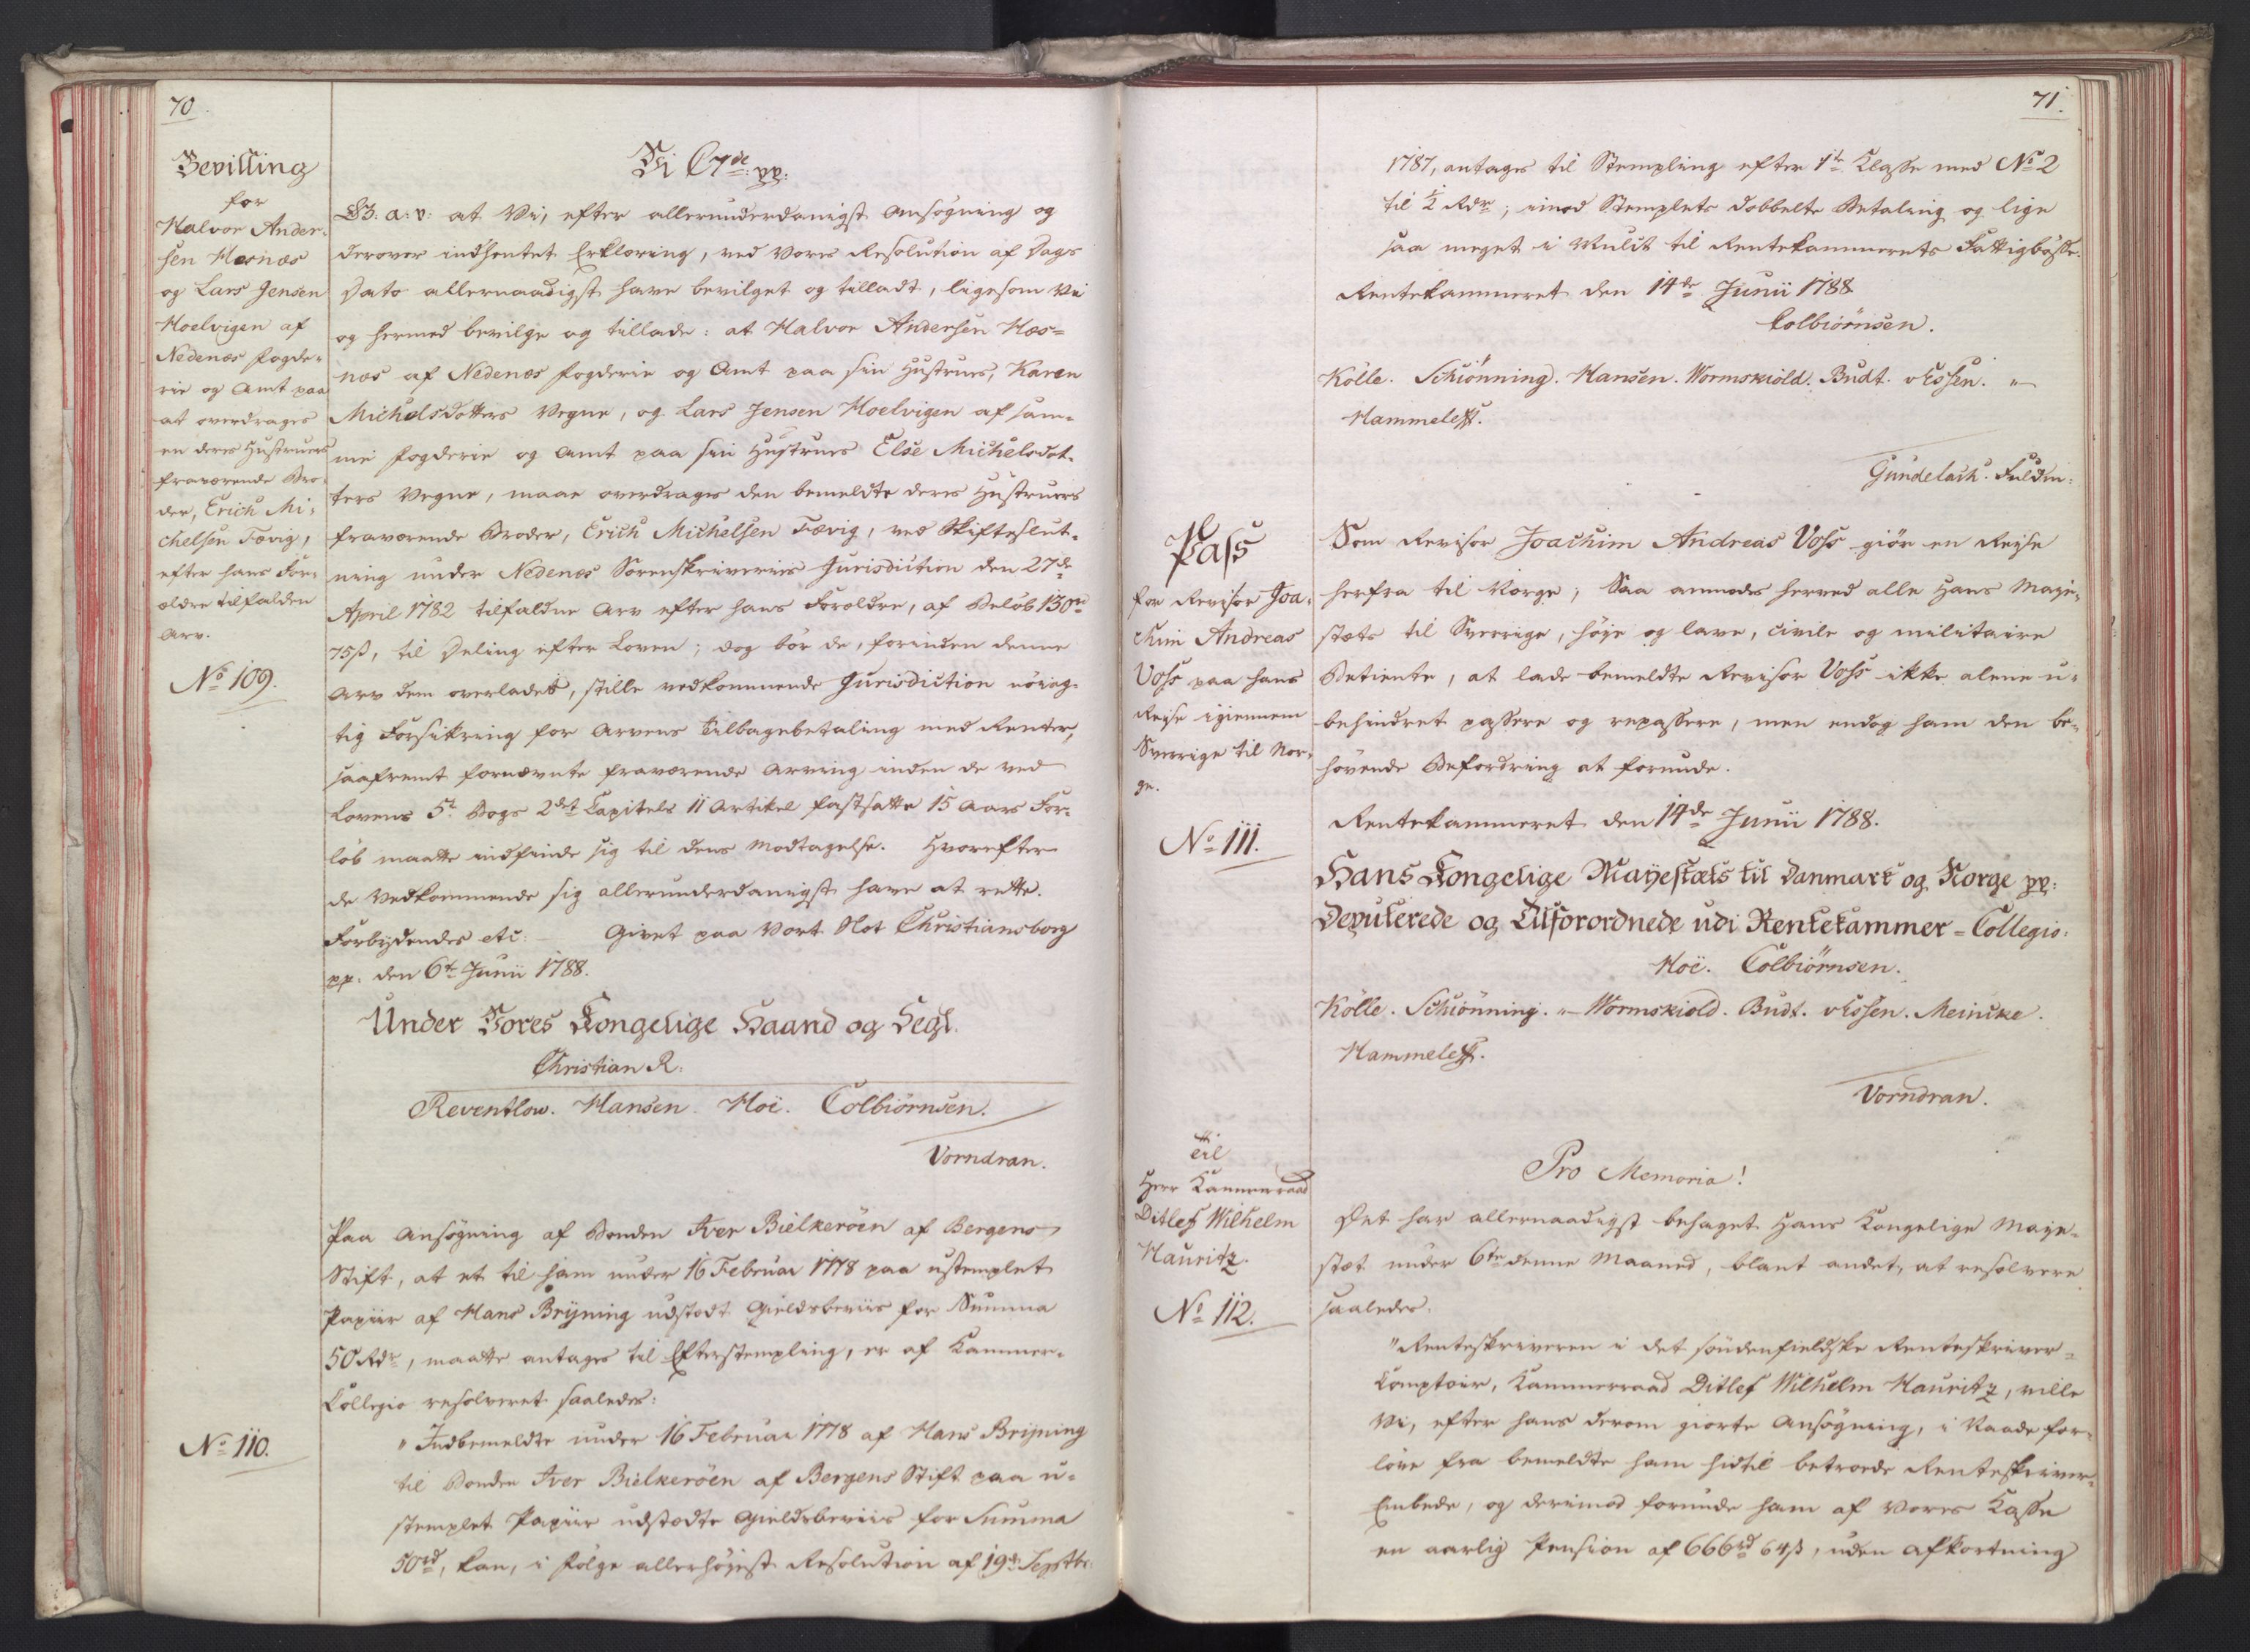 70
Bevilling
for
Halvor Ander-
sen Hæsnæs
og Lars Jensen
Hoelvigen af
Nedenæs Fogde-
rie og Amt paa
at overdrages
en deres Hustruers
fraværende Bro-
der, Erich Mi-
chelsen Fævig,
efter hans For-
ældre tilfalden
Arv.
No 109.
Vi C 7de pp:
G: a: v: at Vi, efter allerunderdanigst Ansøgning og
derover indhentet Erklæring, ved Vores Resolution af Dags
Dato allernaadigst have bevilget og tilladt, ligesom Vi
og hermed bevilge og tillade: at Halvor Andersen Hæs-
næs af Nedenæs Fogderie og Amt paa sin Hustrues, Karen
Michelsdotters Vegne, og Lars Jensen Hoelvigen af sam-
me Fogderie og Amt paa sin Hustrues Else Michelsdot-
ters Vegne, maae overdrages den bemeldte deres Hustruers
fraværende Broder, Erich Michelsen Fævig, ved Skifteslut-
ning under Nedenes Sorenskriveries Jurisdiction den 27de
April 1782 tilfaldne Arv efter hans Forældre, af Beløb 130rd
75ß, til Deling efter Loven; dog bør de, forinden denne
Arv dem overlades, stille vedkommende Jurisdiction nøiag-
tig Forsikring for Arvens Tilbagebetaling med Renter,
saafremt fornævnte fraværende Arving inden de ved
Lovens 5t Bogs 2det Capitels 11 Artikel fastsatte 15 Aars For-
løb maatte indfinde sig til dens Modtagelse. Hvorefter
de Vedkommende sig allerunderdanigst have at rette.
Forbydendes etc: Givet paa Vort Slot Christiansborg
pp: den 6te Junii 1788.
Under Vores Kongelige Haand og Segl.
Christian R.
Reventlow. Hansen. Hoë. Colbiørnsen.
Vorndran.
Paa Ansøgning af Bonden Iver Bielkerøen af Bergens
Stift, at et til ham under 16 Februar 1778 paa ustemplet
Papiir af Hans Bryning udstædt Gieldsbeviis for Summa
50 Rdr, maatte antages til Efterstempling, er af Kammer-
Collegio resolveret saaledes:
No 110.
"Indbemeldte under 16 Februar 1778 af Hans Bryning
til Bonden Iver Bielkerøen af Bergens Stift paa u-
stemplet Papiir udstædte Gieldsbeviis for Summa
50rd, kan, i følge allerhøiest Resolution af 19de Septbr:
71.
1787, antages til Stempling efter 1te Classe med No 2
til ½ Rdr; imod Stemplets dobbelte Betaling og lige
saa meget i Mulct til Rentekammerets Fattigbøsse.
Rentekammeret den 14de Junii 1788
Colbiørnsen.
Kölle. Schiønning. Hansen. Wormskiold. Budt. v Essen. "
Hammeleff.
Gundelach. Fuldm:
Pass
for Revisor Joa-
chim Andreas
Voss paa hans
Reise igiennem
Sverrige til Nor-
ge.
No 111.
Som Revisor Joachim Andreas Voss giør en Reise
herfra til Norge; Saa anmodes herved alle Hans Maje-
stæts til Sverrige, høie og lave, civile og militaire
Betiente, at lade bemeldte Revisor Voss ikke alene u-
behindret passere og repassere, men endog ham den be-
høvende Befordring at forunde.
Rentekammeret den 14de Junii 1788.
Hans Kongelige Mayestæts til Danmark og Norge pp:
Deputerede og Tilforordnede udi Rentekammer-Collegio:
Hoë. Colbiørnsen.
Kölle. Schiønning. " Wormskiold. Budt. v Essen. Meincke.
Hammeleff.
Vorndran.
Til
Herr Kammerraad
Ditlef Wilhelm
Hauritz.
No 112.
Pro Memoria!
Det har allernaadigst behaget Hans Kongelige Maje-
stæt under 6te denne Maaned, blant andet, at resolvere
saaledes:
"Renteskriveren i det søndenfieldske Renteskriver-
Comptoir, Kammerraad Ditlef Wilhelm Hauritz, ville
Vi, efter hans derom giorte Ansøgning, i Naade for-
løve fra bemeldte ham hidtil betroede Renteskriver-
Embede, og derimod forunde ham af Vores Casse
en aarlig Pension af 666rd 64ß, uden Afkortning